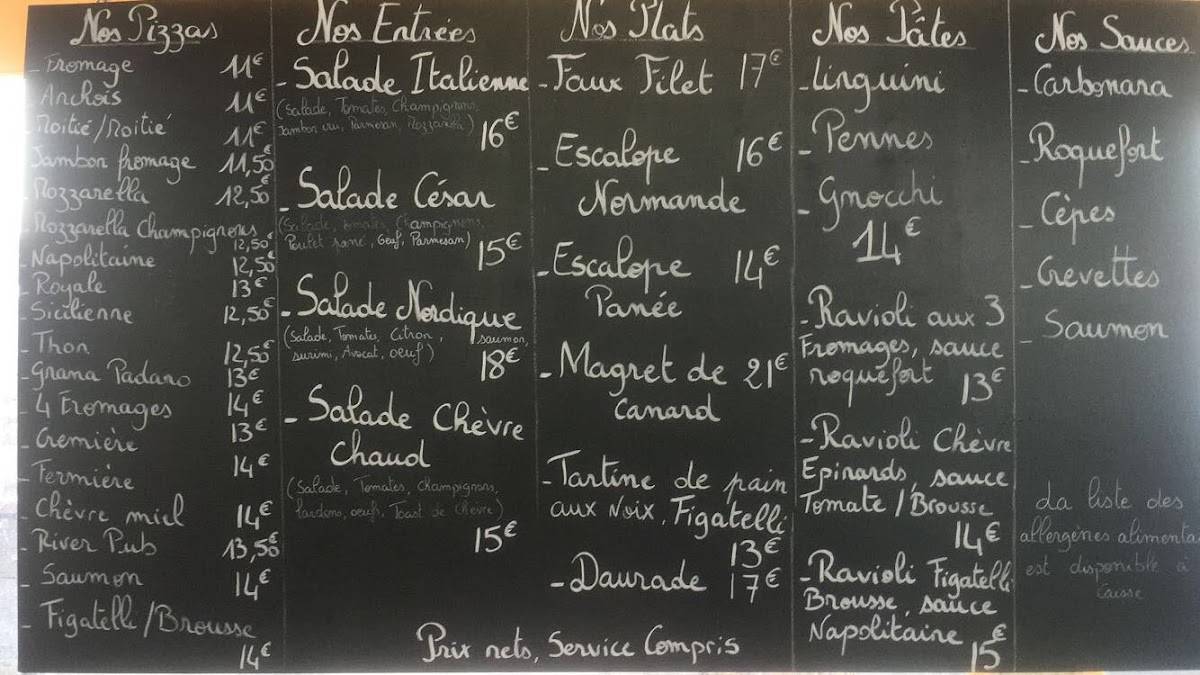 Nos Pizzas
- Fromage 11€
- Anchois 11€
- Moitié/Moitié 11€
- Jambon fromage 11,50€
- Mozzarella 12,50€
- Mozzarella Champignons 12,50€
- Napolitaine 12,50€
- Royale 13€
- Sicilienne 12,50€
- Thon 12,50€
- Grana Padano 13€
- 4 Fromages 14€
- Cremière 13€
- Fermière 14€
- Chèvre miel 14€
- River Pub 13,50€
- Saumon 14€
- Figatelli/Brousse
14€
Nos Entrées
- Salade Italienne
(Salade, Tomates, Champignons,
Jambon cru, Parmesan, Mozzarella)
16€
- Salade César
(Salade, tomates, Champignons,
Poulet pané, Oeuf, Parmesan)
15€
- Salade Nordique
(Salade, Tomates, Citron, saumon,
surimi, Avocat, oeuf)
18€
- Salade Chèvre
Chaud
(Salade, Tomates, Champignons,
lardons, oeufs, Toast de Chèvre)
15€
Nos Plats
- Faux Filet 17€
- Escalope 16€
Normande
- Escalope 14€
Panée
- Magret de 21€
canard
- Tartine de pain
aux Noix, Figatelli
13€
- Daurade 17€
Nos Pâtes
- Linguini
- Pennes
- Gnocchi
14€
- Ravioli aux 3
Fromages, sauce
roquefort 13€
- Ravioli Chèvre
Epinards, sauce
Tomate/Brousse
14€
- Ravioli Figatelli
Brousse, sauce
Napolitaine 15€
Nos Sauces
- Carbonara
- Roquefort
- Cèpes
- Crevettes
- Saumon
La liste des
allergènes alimenta
est disponible à
Caisse
Prix nets, Service Compris